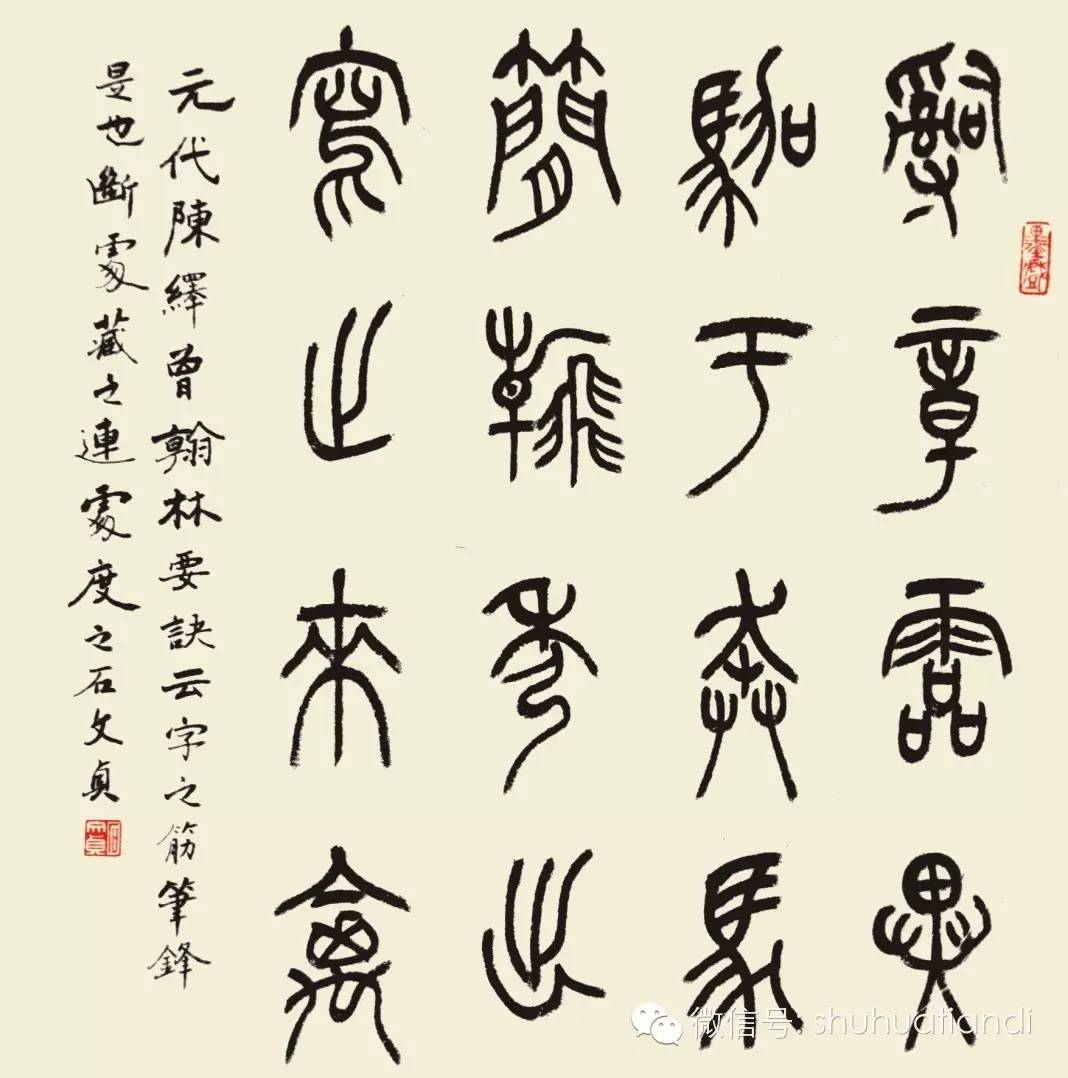 辭章霝異
駕于奔馬
簡翰秀出
寫之來禽
元代陳繹曾翰林要訣云字之筋筆鋒
是也斷處藏之連處度之石文貞
微信号: shuhuatiandi